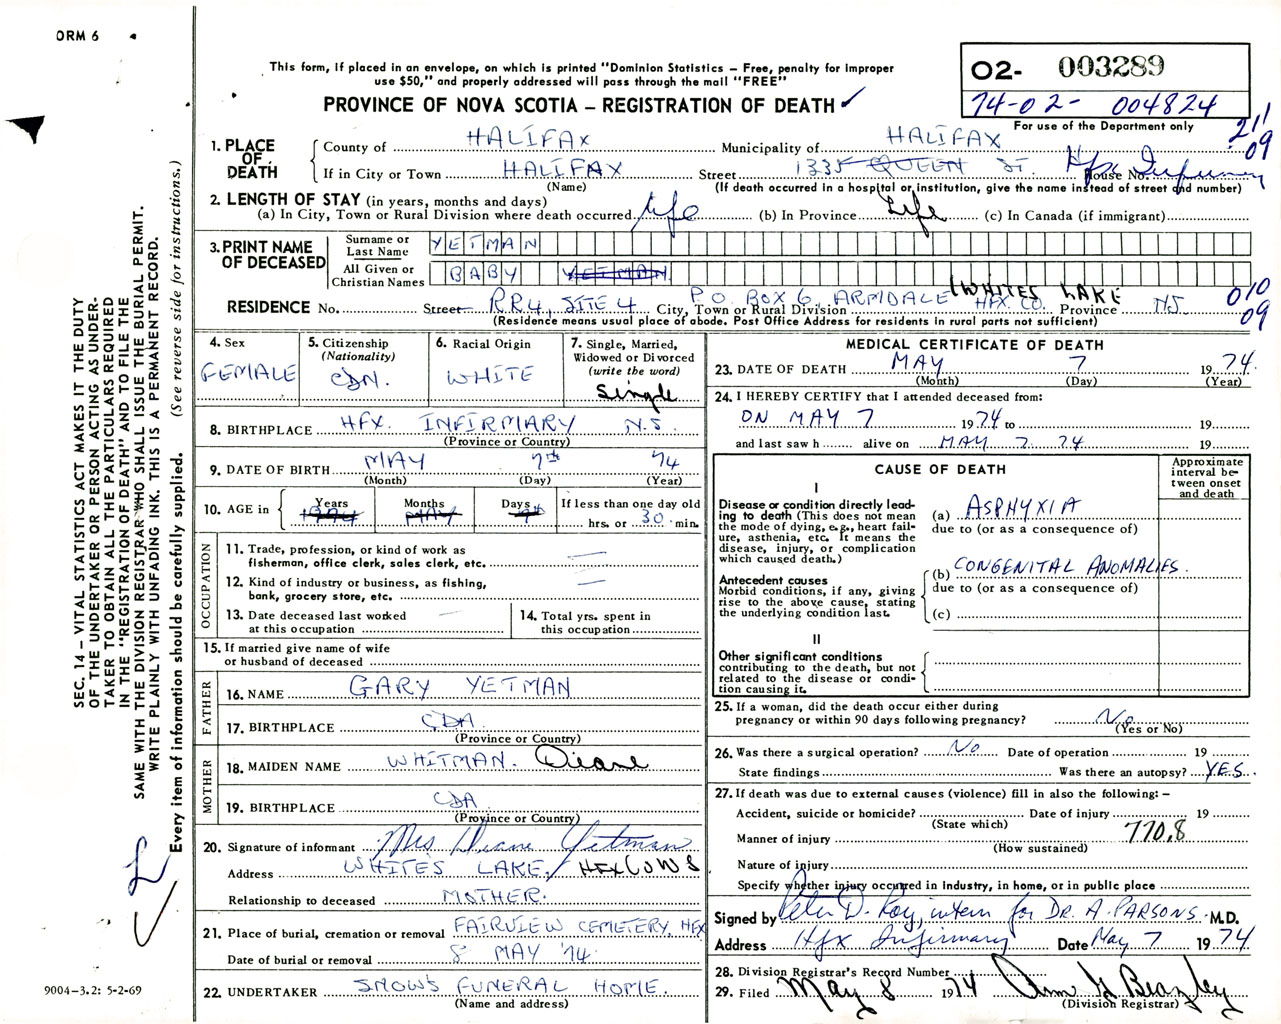 ORM 6
This form, if placed in an envelope, on which is printed "Dominion Statistics – Free, penalty for improper
use $50," and properly addressed will pass through the mail "FREE"
PROVINCE OF NOVA SCOTIA – REGISTRATION OF DEATH ✓
02- 003289
74-02- 004824
For use of the Department only
211
09
1. PLACE OF DEATH
County of HALIFAX Municipality of HALIFAX
If in City or Town HALIFAX Street 1335 QUEEN ST. House No. Hfx Infirmary
(Name) (If death occurred in a hospital or institution, give the name instead of street and number)
2. LENGTH OF STAY (in years, months and days)
(a) In City, Town or Rural Division where death occurred life (b) In Province Life (c) In Canada (if immigrant)
3. PRINT NAME OF DECEASED
Surname or Last Name YETMAN
All Given or Christian Names BABY YETMAN
RESIDENCE No. Street RR4, SITE 4 P.O. BOX 6, ARMDALE (WHITES LAKE City, Town or Rural Division HFX CO. Province NS
(Residence means usual place of abode. Post Office Address for residents in rural parts not sufficient)
010
09
4. Sex FEMALE
5. Citizenship (Nationality) CDN.
6. Racial Origin WHITE
7. Single, Married, Widowed or Divorced (write the word) Single
8. BIRTHPLACE HFX. INFIRMARY N.S.
(Province or Country)
9. DATE OF BIRTH MAY 7th 74
(Month) (Day) (Year)
10. AGE in Years 1974 Months MAY Days 7th If less than one day old hrs. or 30 min.
OCCUPATION
11. Trade, profession, or kind of work as
fisherman, office clerk, sales clerk, etc. —
12. Kind of industry or business, as fishing,
bank, grocery store, etc. —
13. Date deceased last worked
at this occupation —
14. Total yrs. spent in
this occupation
15. If married give name of wife
or husband of deceased
FATHER
16. NAME GARY YETMAN
17. BIRTHPLACE CDA.
(Province or Country)
MOTHER
18. MAIDEN NAME WHITMAN. Diane
19. BIRTHPLACE CDA
(Province or Country)
20. Signature of informant Mrs Diane Yetman
Address WHITES LAKE, Hfx Co N S
Relationship to deceased MOTHER.
21. Place of burial, cremation or removal FAIRVIEW CEMETERY, HFX
Date of burial or removal 8 MAY '74.
22. UNDERTAKER SNOW'S FUNERAL HOME.
(Name and address)
MEDICAL CERTIFICATE OF DEATH
23. DATE OF DEATH MAY 7 1974.
(Month) (Day) (Year)
24. I HEREBY CERTIFY that I attended deceased from:
ON MAY 7 1974 to 19
and last saw h alive on MAY 7 74 19
CAUSE OF DEATH
Approximate interval between onset and death
I
Disease or condition directly leading to death (This does not mean the mode of dying, e.g., heart failure, asthenia, etc. It means the disease, injury, or complication which caused death.)
(a) ASPHYXIA
due to (or as a consequence of)
Antecedent causes
Morbid conditions, if any, giving rise to the above cause, stating the underlying condition last.
(b) CONGENITAL ANOMALIES.
due to (or as a consequence of)
(c)
II
Other significant conditions
contributing to the death, but not related to the disease or condition causing it.
25. If a woman, did the death occur either during
pregnancy or within 90 days following pregnancy? No
(Yes or No)
26. Was there a surgical operation? No Date of operation 19
State findings Was there an autopsy? YES.
27. If death was due to external causes (violence) fill in also the following: –
Accident, suicide or homicide? Date of injury 19
(State which)
Manner of injury 770.8
(How sustained)
Nature of injury
Specify whether injury occurred in Industry, in home, or in public place
Signed by Peter D. Roy, intern for DR. A. PARSONS M.D.
Address Hfx Infirmary Date May 7 1974
28. Division Registrar's Record Number
29. Filed May 8 1974 Ann G Beazley
(Division Registrar)
SEC. 14 – VITAL STATISTICS ACT MAKES IT THE DUTY
OF THE UNDERTAKER OR PERSON ACTING AS UNDER-
TAKER TO OBTAIN ALL THE PARTICULARS REQUIRED
IN THE "REGISTRATION OF DEATH" AND TO FILE THE
SAME WITH THE DIVISION REGISTRAR WHO SHALL ISSUE THE BURIAL PERMIT.
WRITE PLAINLY WITH UNFADING INK. THIS IS A PERMANENT RECORD.
Every item of information should be carefully supplied. (See reverse side for instructions.)
9004-3.2: 5-2-69